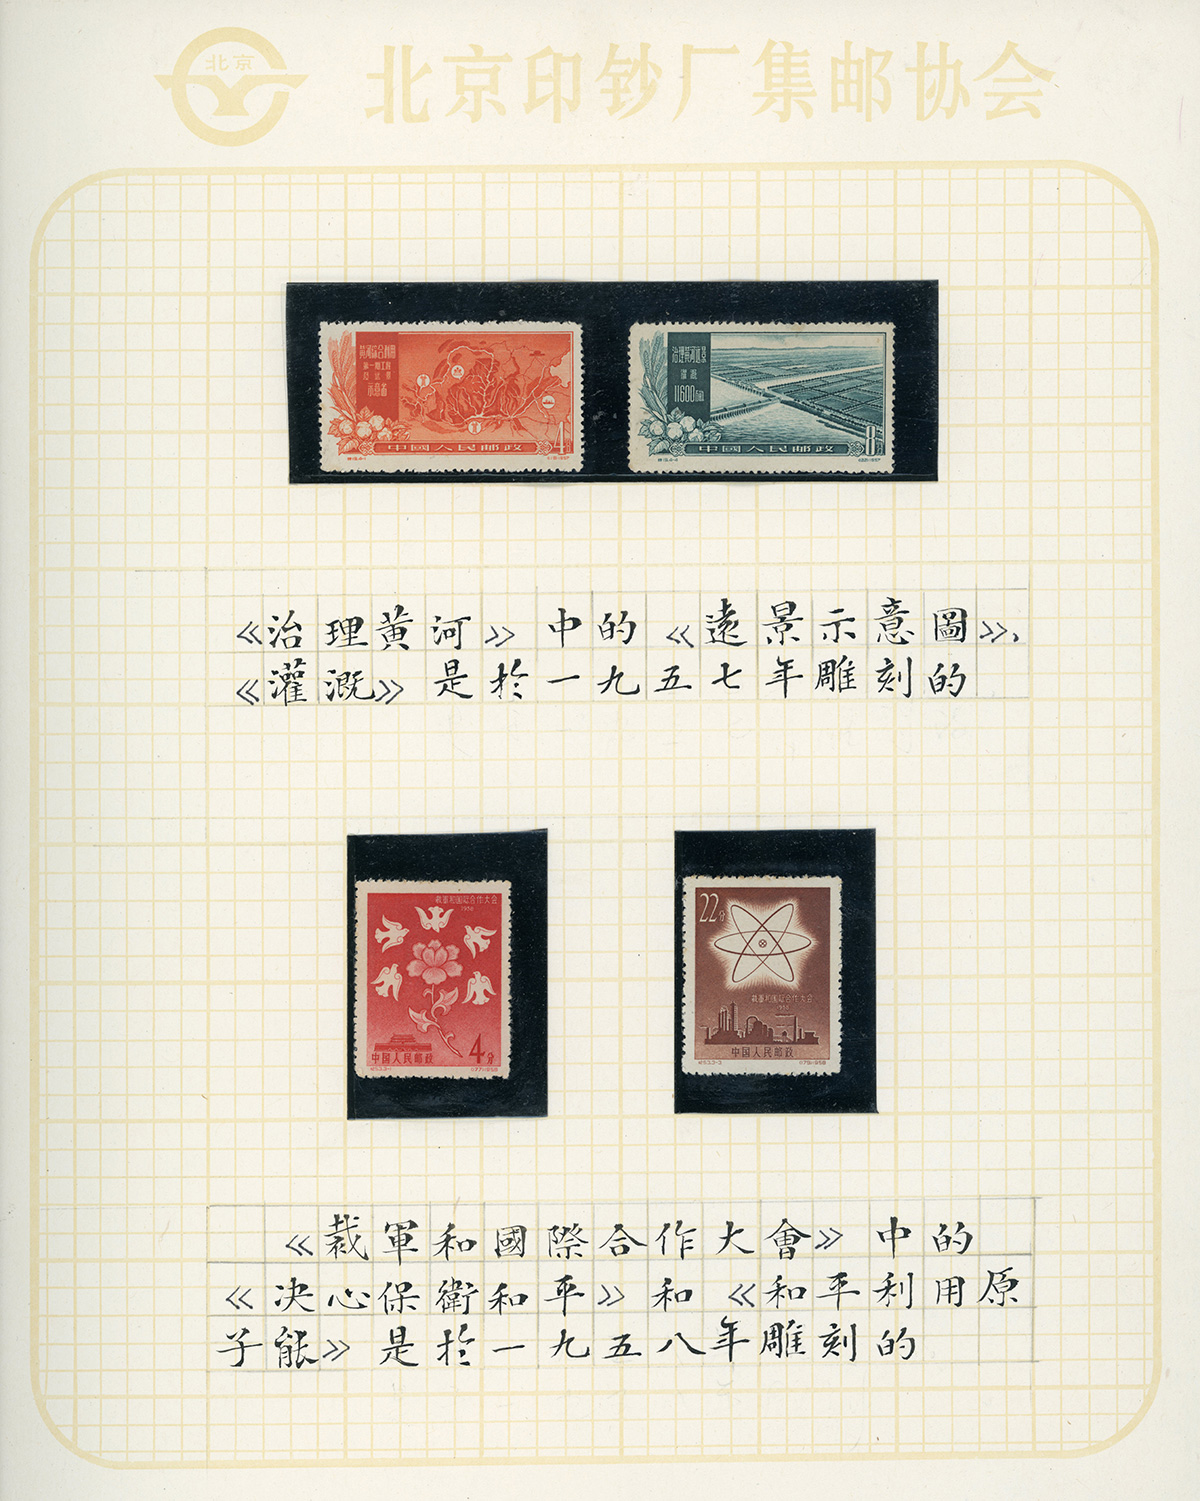 北京
北京印钞厂集邮协会
黄河综合利用
第一期工程
示意图
4
中國人民邮政
治理黄河远景
灌溉
11600
8
中國人民邮政
《治理黄河》中的《遠景示意圖》、
《灌溉》是於一九五七年雕刻的
裁軍和国际合作大会
1958
4分
中国人民邮政
22分
裁軍和国际合作大会
1958
中国人民邮政
《裁軍和國際合作大會》中的
《决心保衛和平》和《和平利用原
子能》是於一九五八年雕刻的